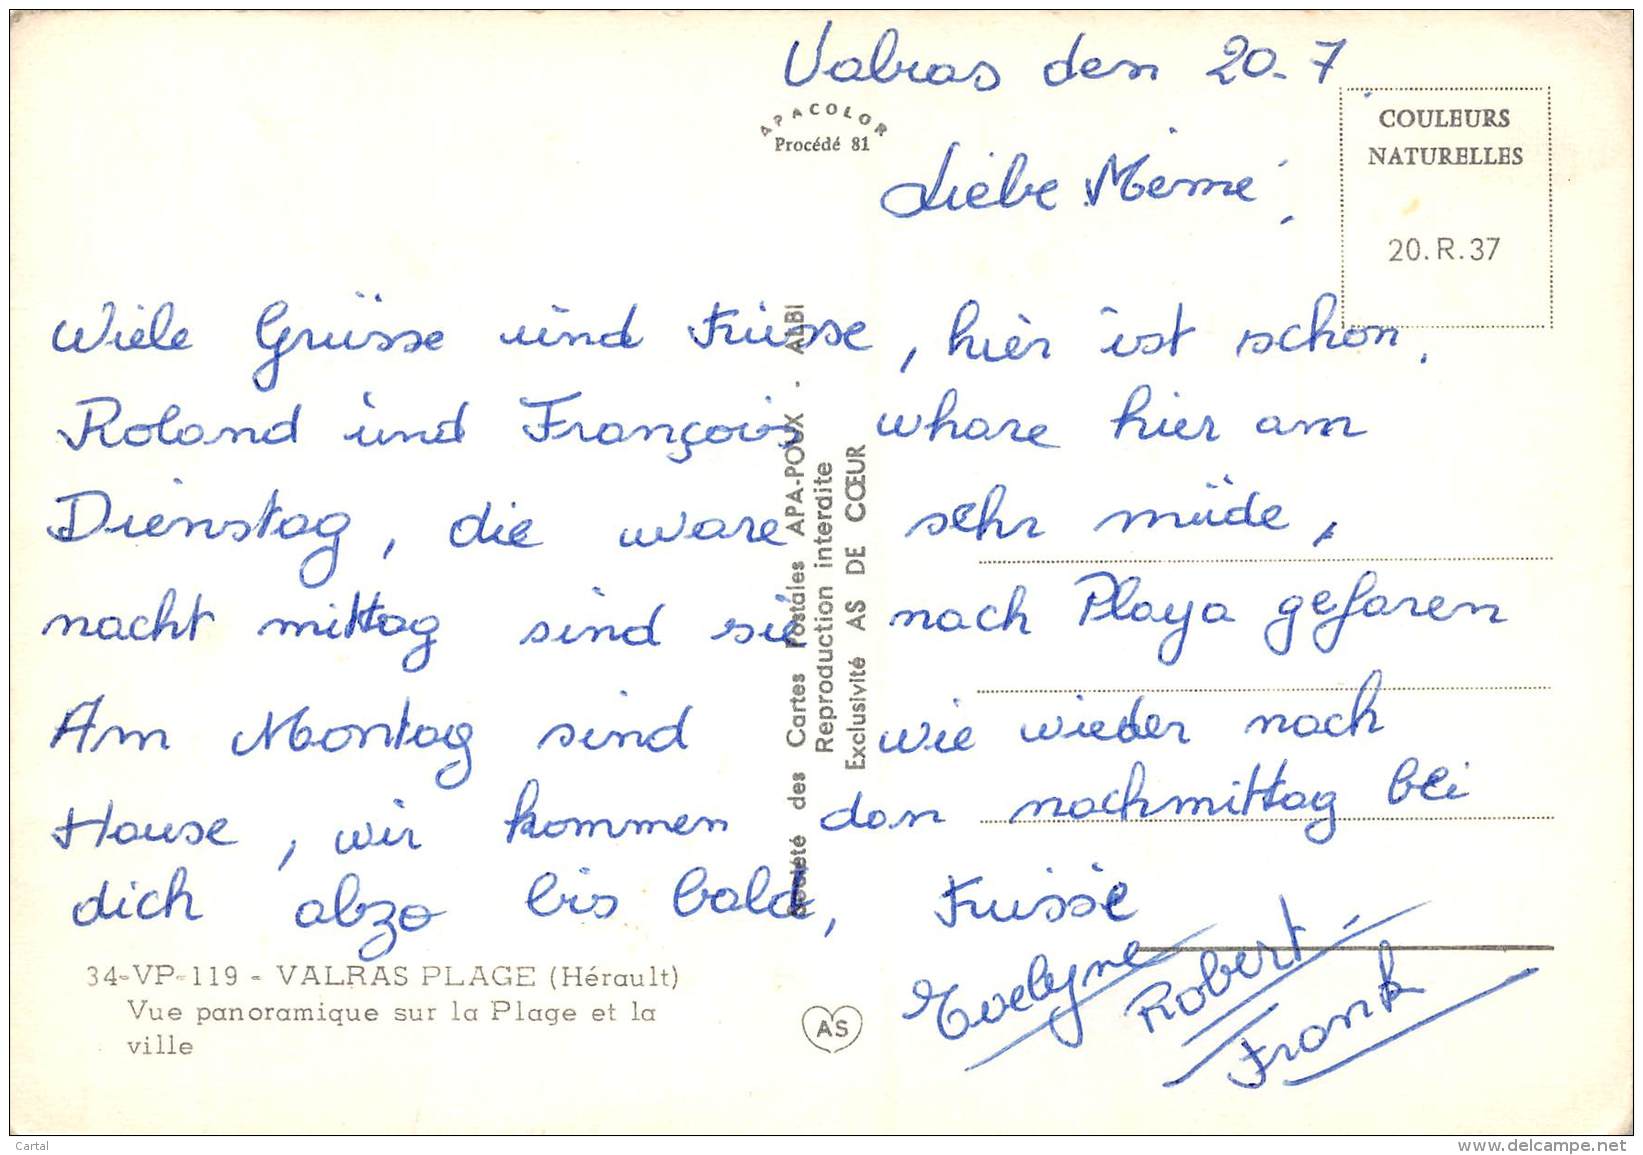 Valras den 20-7
APACOLOR
Procédé 81
COULEURS
NATURELLES
20.R.37
Liebe Mémé,
Wiele Grüsse und Küsse, hier ist schon.
Roland und François whare hier am
Dienstag, die ware sehr müde,
nacht mittag sind sie nach Playa gefaren
Am Montag sind wie wieder nach
House, wir kommen dan nachmittag bei
dich abzo bis bald, Küsse
Evelyne
Robert
Frank
Société des Cartes Postales APA-POUX - ALBI
Reproduction interdite
Exclusivité AS DE CŒUR
34-VP-119 - VALRAS PLAGE (Hérault)
Vue panoramique sur la Plage et la
ville
AS
Cartal
www.delcampe.net